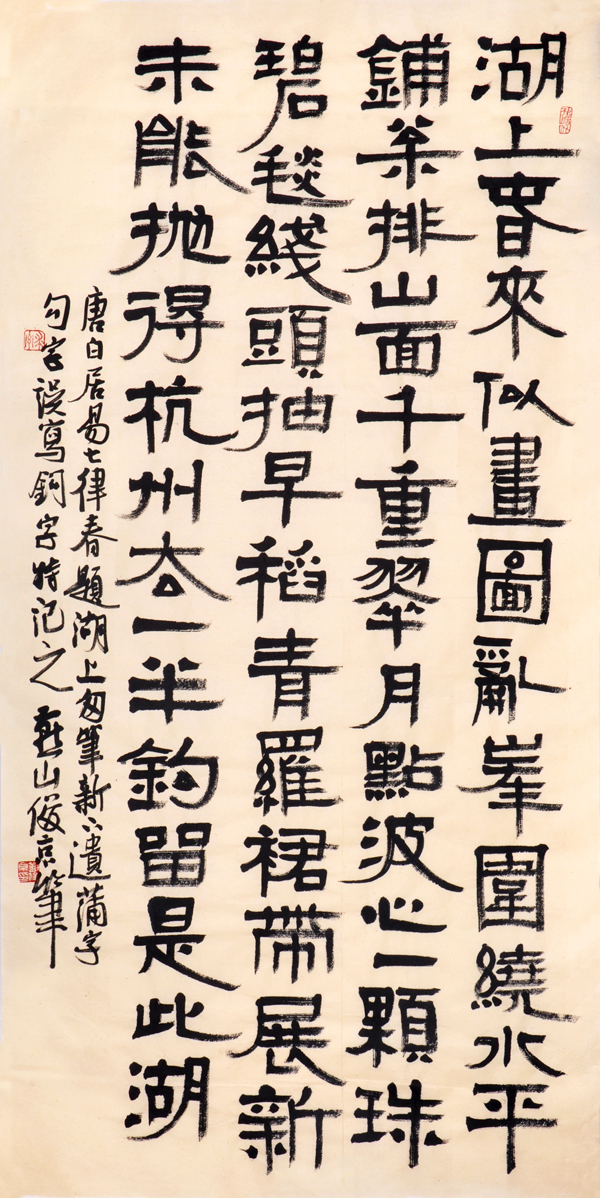 湖上春來似畫圖亂峯圍繞水平
鋪枀排山面千重翠月點波心一顆珠
碧毯綫頭抽早稻青羅裙帶展新
未能抛得杭州去一半鈎留是此湖
唐白居易七律春題湖上匆筆新下遺蒲字
勾字誤寫鈎字特記之 燕山俊京筆